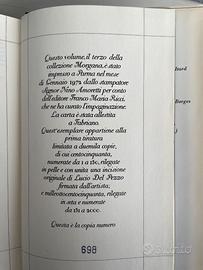 Questo volume, il terzo della
collezione Morgana, è stato
impresso a Parma nel mese
di Gennaio 1972 dallo stampatore
Signor Nino Amoretti per conto
dell'editore Franco Maria Ricci,
che ne ha curato l'impaginazione.
La carta è stata allestita
a Fabriano.
Quest'esemplare appartiene alla
prima tiratura
limitata a duemila copie,
di cui centocinquanta,
numerate da 1 a 150, rilegate
in pelle e con unita una incisione
originale di Lucio Del Pezzo
firmata dall'artista;
e milleottocentocinquanta, rilegate
in seta e numerate
da 151 a 2000.
Questa è la copia numero
698
Borges
subito